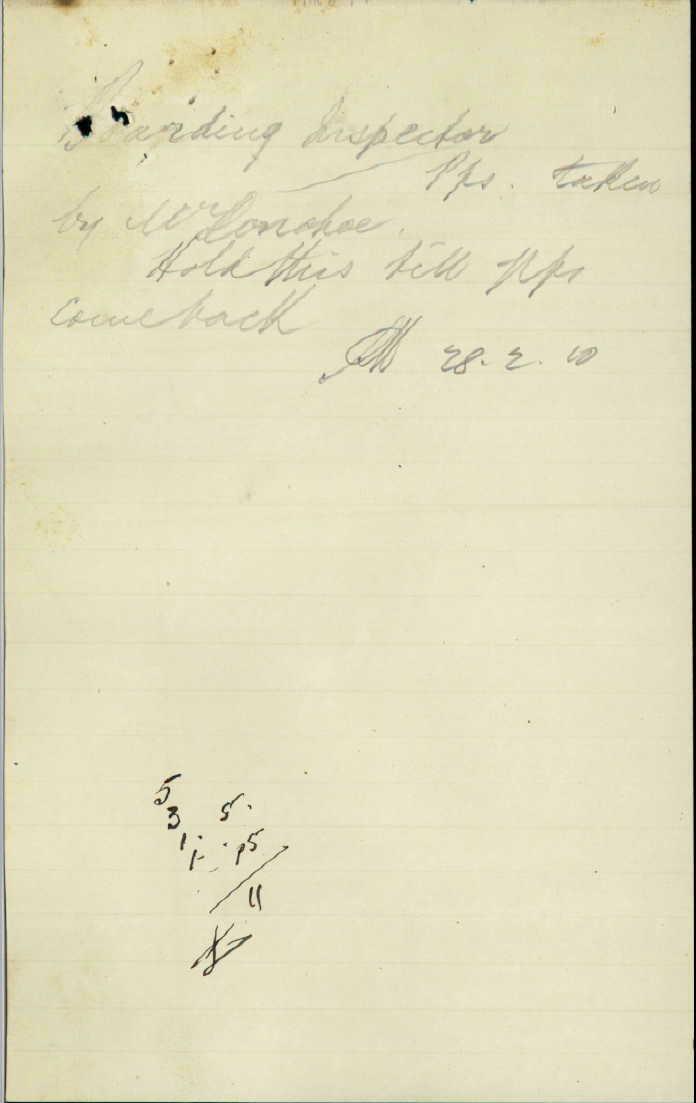 Boarding Inspector
Pps. taken
by Mr Donohoe.
Hold this till pps
come back
28.2.10
5
3 5.
1.
1- .15
11